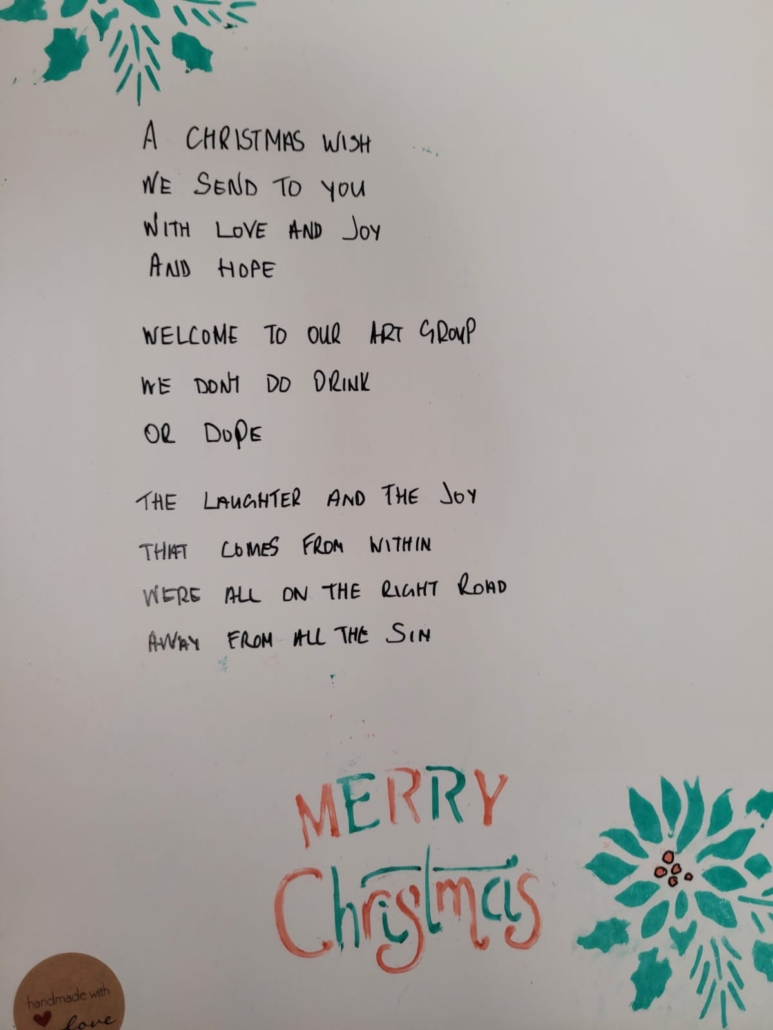 A CHRISTMAS WISH
WE SEND TO YOU
WITH LOVE AND JOY
AND HOPE
WELCOME TO OUR ART GROUP
WE DONT DO DRINK
OR DOPE
THE LAUGHTER AND THE JOY
THAT COMES FROM WITHIN
WERE ALL ON THE RIGHT ROAD
AWAY FROM ALL THE SIN
MERRY
Christmas
handmade with
love